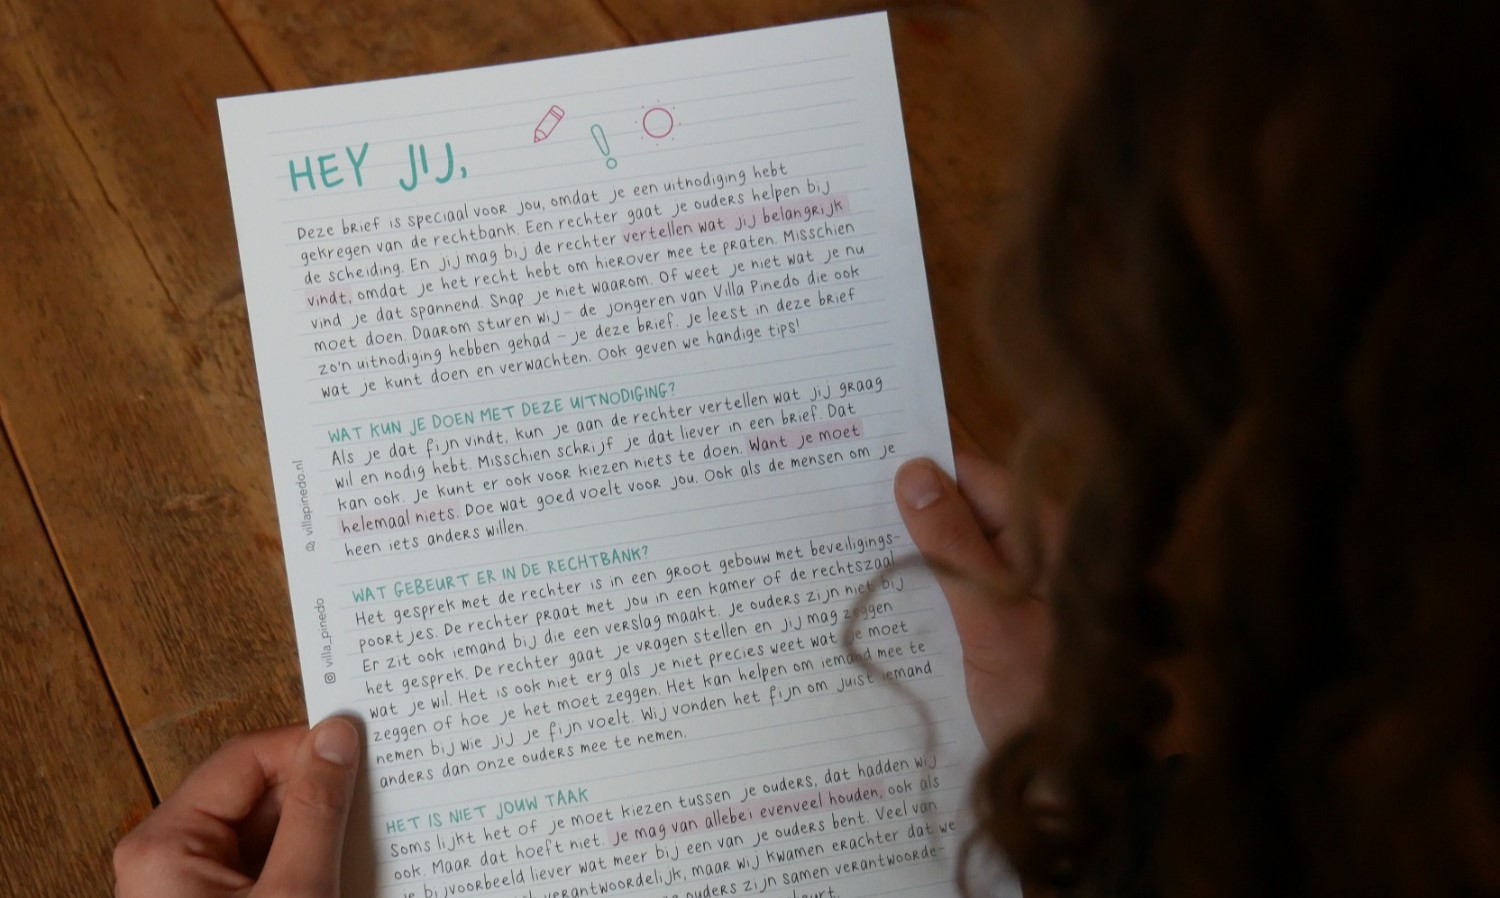 HEY JIJ,
Deze brief is speciaal voor jou, omdat je een uitnodiging hebt
gekregen van de rechtbank. Een rechter gaat je ouders helpen bij
de scheiding. En jij mag bij de rechter vertellen wat jij belangrijk
vindt, omdat je het recht hebt om hierover mee te praten. Misschien
vind je dat spannend. Snap je niet waarom. Of weet je niet wat je nu
moet doen. Daarom sturen wij – de jongeren van Villa Pinedo die ook
zo'n uitnodiging hebben gehad – je deze brief. Je leest in deze brief
wat je kunt doen en verwachten. Ook geven we handige tips!
WAT KUN JE DOEN MET DEZE UITNODIGING?
Als je dat fijn vindt, kun je aan de rechter vertellen wat jij graag
wil en nodig hebt. Misschien schrijf je dat liever in een brief. Dat
kan ook. Je kunt er ook voor kiezen niets te doen. Want je moet
helemaal niets. Doe wat goed voelt voor jou. Ook als de mensen om je
heen iets anders willen.
WAT GEBEURT ER IN DE RECHTBANK?
Het gesprek met de rechter is in een groot gebouw met beveiligings-
poortjes. De rechter praat met jou in een kamer of de rechtszaal.
Er zit ook iemand bij die een verslag maakt. Je ouders zijn niet bij
het gesprek. De rechter gaat je vragen stellen en jij mag zeggen
wat je wil. Het is ook niet erg als je niet precies weet wat je moet
zeggen of hoe je het moet zeggen. Het kan helpen om iemand mee te
nemen bij wie jij je fijn voelt. Wij vonden het fijn om juist iemand
anders dan onze ouders mee te nemen.
HET IS NIET JOUW TAAK
Soms lijkt het of je moet kiezen tussen je ouders, dat hadden wij
ook. Maar dat hoeft niet. Je mag van allebei evenveel houden, ook als
je bijvoorbeeld liever wat meer bij een van je ouders bent. Veel van
verantwoordelijk, maar wij kwamen erachter dat we
ouders zijn samen verantwoorde-
villapinedo.nl
villa_pinedo